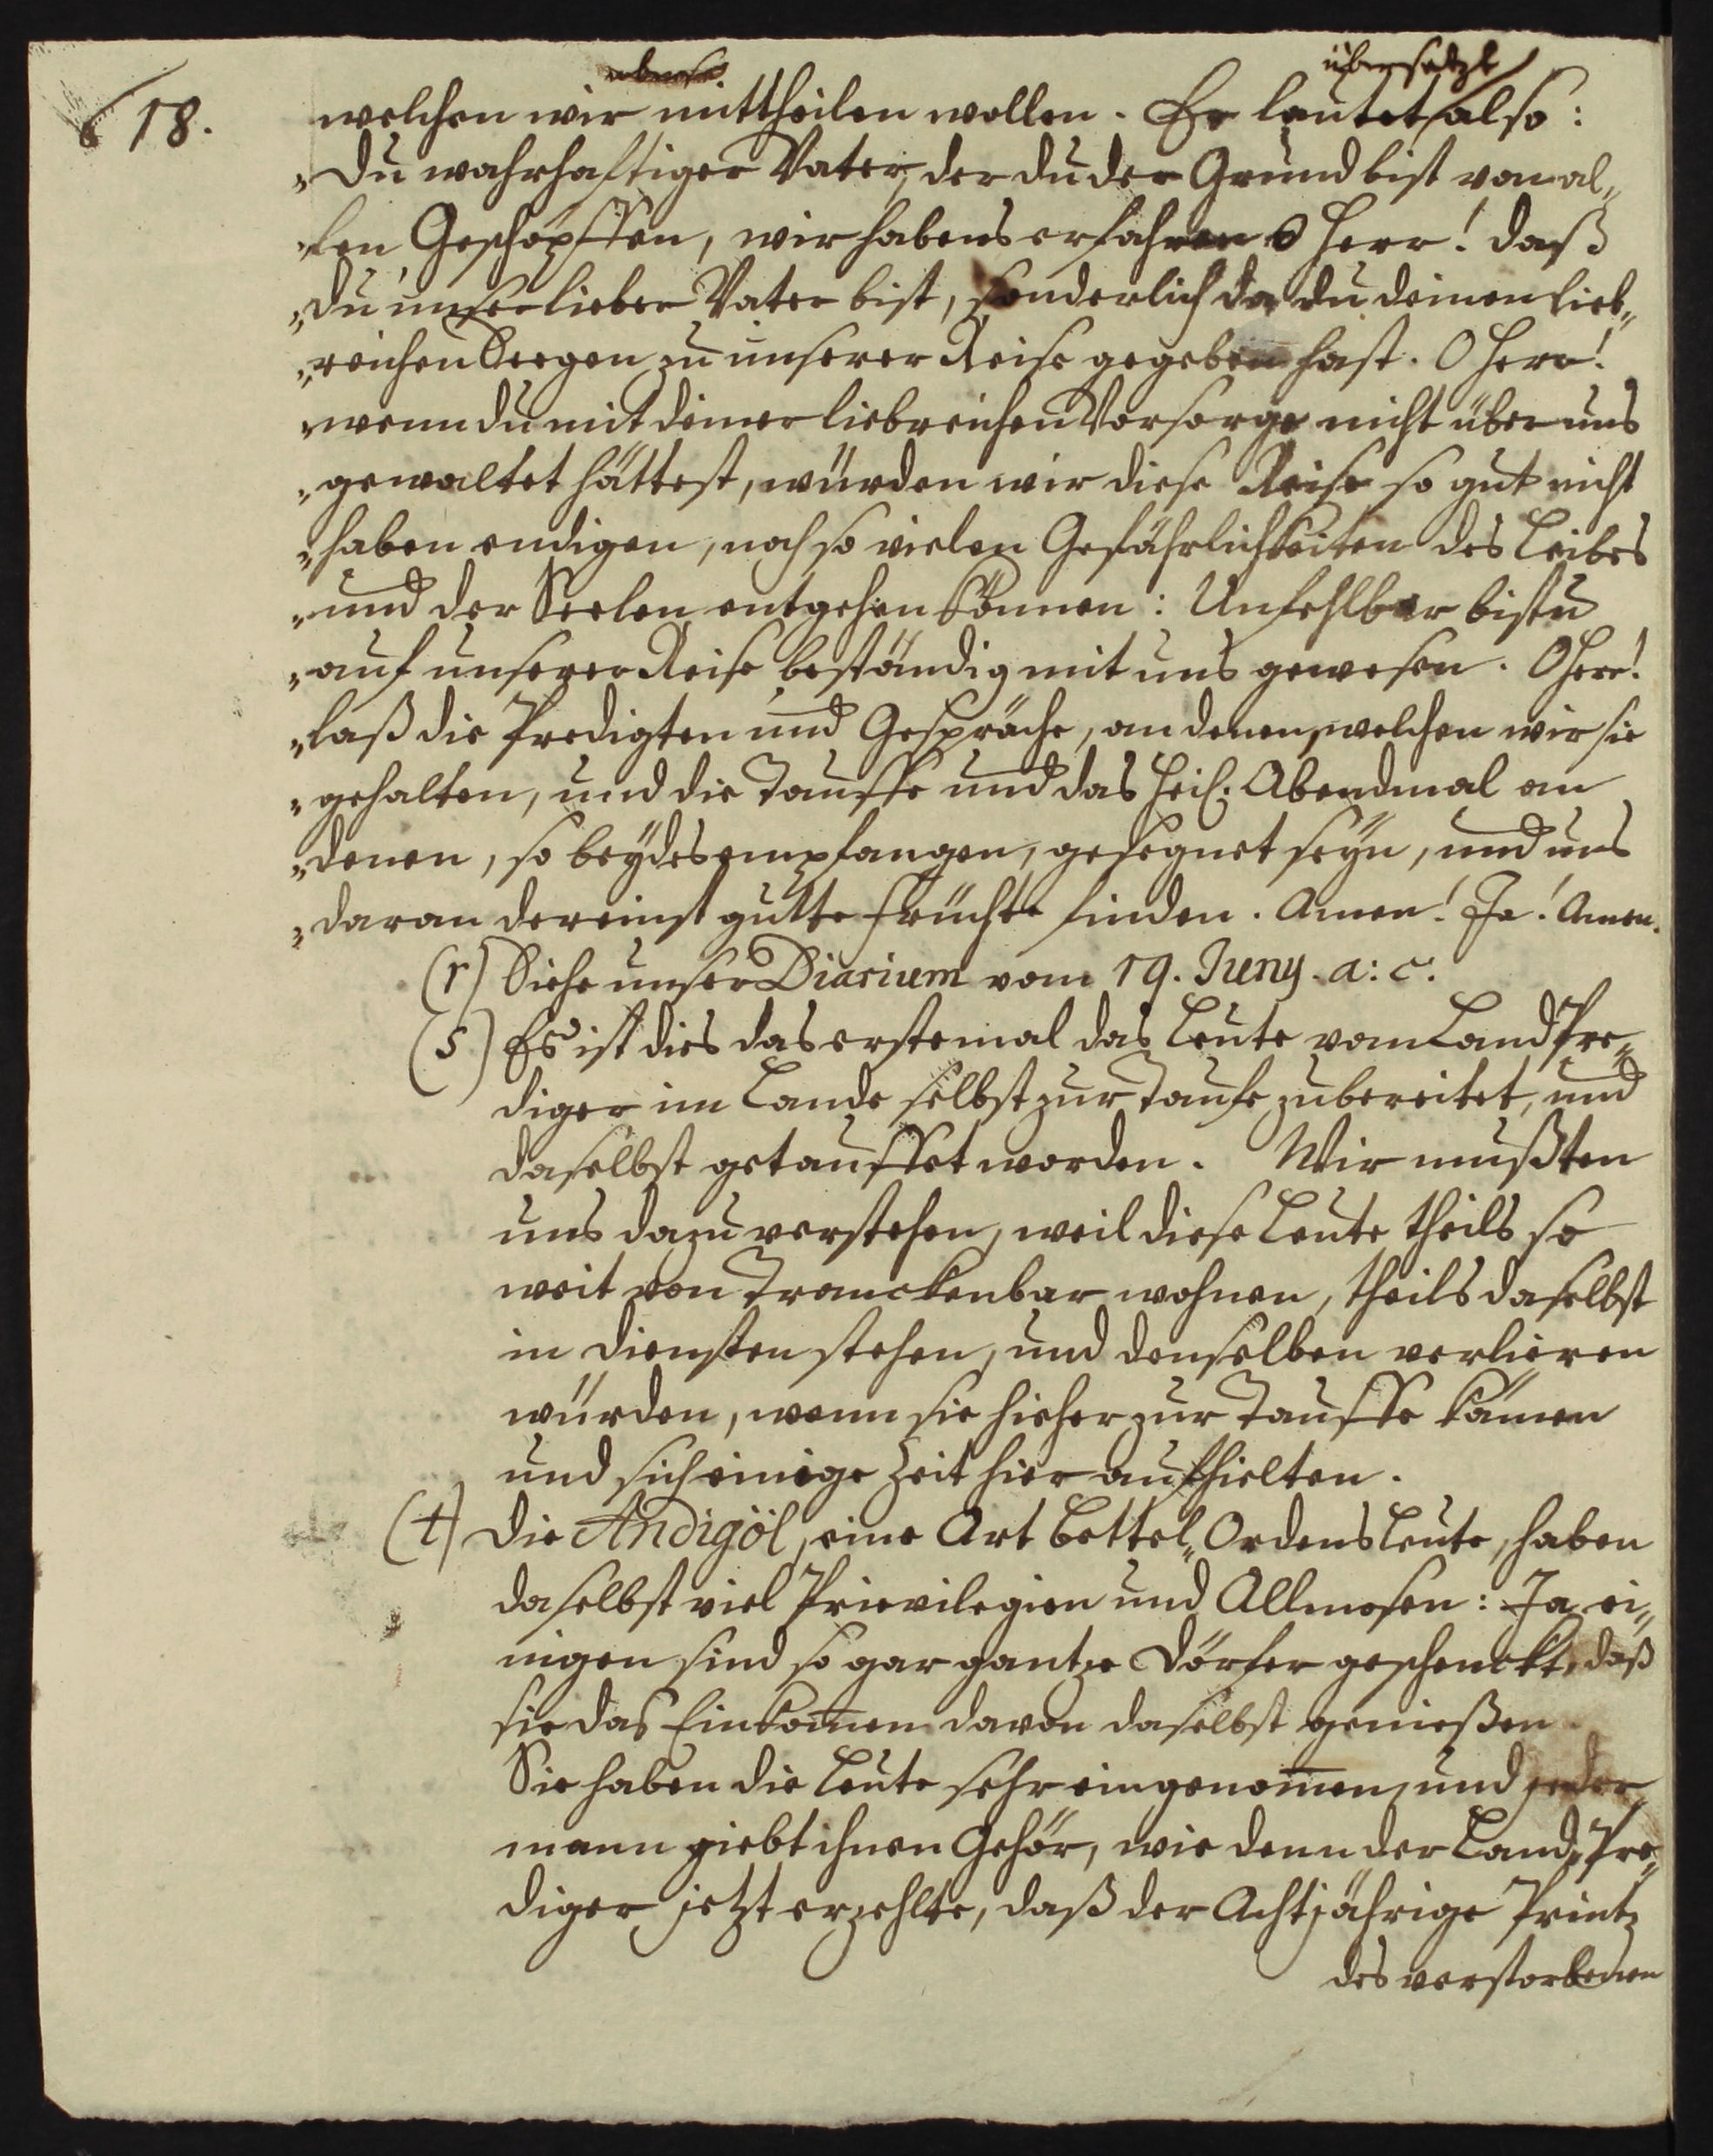 übersetzt
18. welchen wir mittheilen wollen. Er lautet also:
„Du wahrhaftiger Vater, der du der Grund bist von al„
„len Geschöpffen, wir habens erfahren o Herr! daß
„du unser lieber Vater bist, sonderlich da du deinen lieb„
„reichen Seegen zu unserer Reise gegeben hast. O Herr!
„wenn du mit deiner liebreichen Vorsorge nicht über uns
„gewaltet hättest, würden wir diese Reise so gut nicht
„haben endigen, noch so vielen Gefährlichkeiten des Leibes
„und der Seelen entgehen können: Unfehlbar bistu
„auf unserer Reise beständig mit uns gewesen. O Herr!
„laß die Predigten und Gespräche, an denen, welchen wir sie
„gehalten, und die Tauffe und das Heil. Abendmal an
„denen, so beydes empfangen, gesegnet seyn, und uns
„daran dereinst gutte Früchte finden. Amen! Ja! Amen.
(r) Siehe unser Diarium vom 19. Juny. a: c.
(s) Es ist dies das erstemal das Leute vom Land Pre„
diger im Lande selbst zur Taufe zubereitet, und
daselbst getauffet worden. Wir mußten
uns dazu verstehen, weil diese Leute theils so
weit von Tranckenbar wohnen, theils daselbst
in Diensten stehen, und denselben verlieren
würden, wenn sie hieher zur Tauffe kämen
und sich einige Zeit hier aufhielten.
(t) Die Andigöl, eine Art Bettel„Ordens Leute, haben
daselbst viel Privilegien und Allmosen: Ja ei„
nigen sind so gar gantze Dörfer geschenckt, daß
sie das Einkom̄en davon daselbst genießen.
Sie haben die Leute sehr eingenom̄en, und jeder„
mann giebt ihnen Gehör, wie denn der Land„Pre„
diger jetzt erzehlte, daß der Achtjährige Printz
des verstorbenen